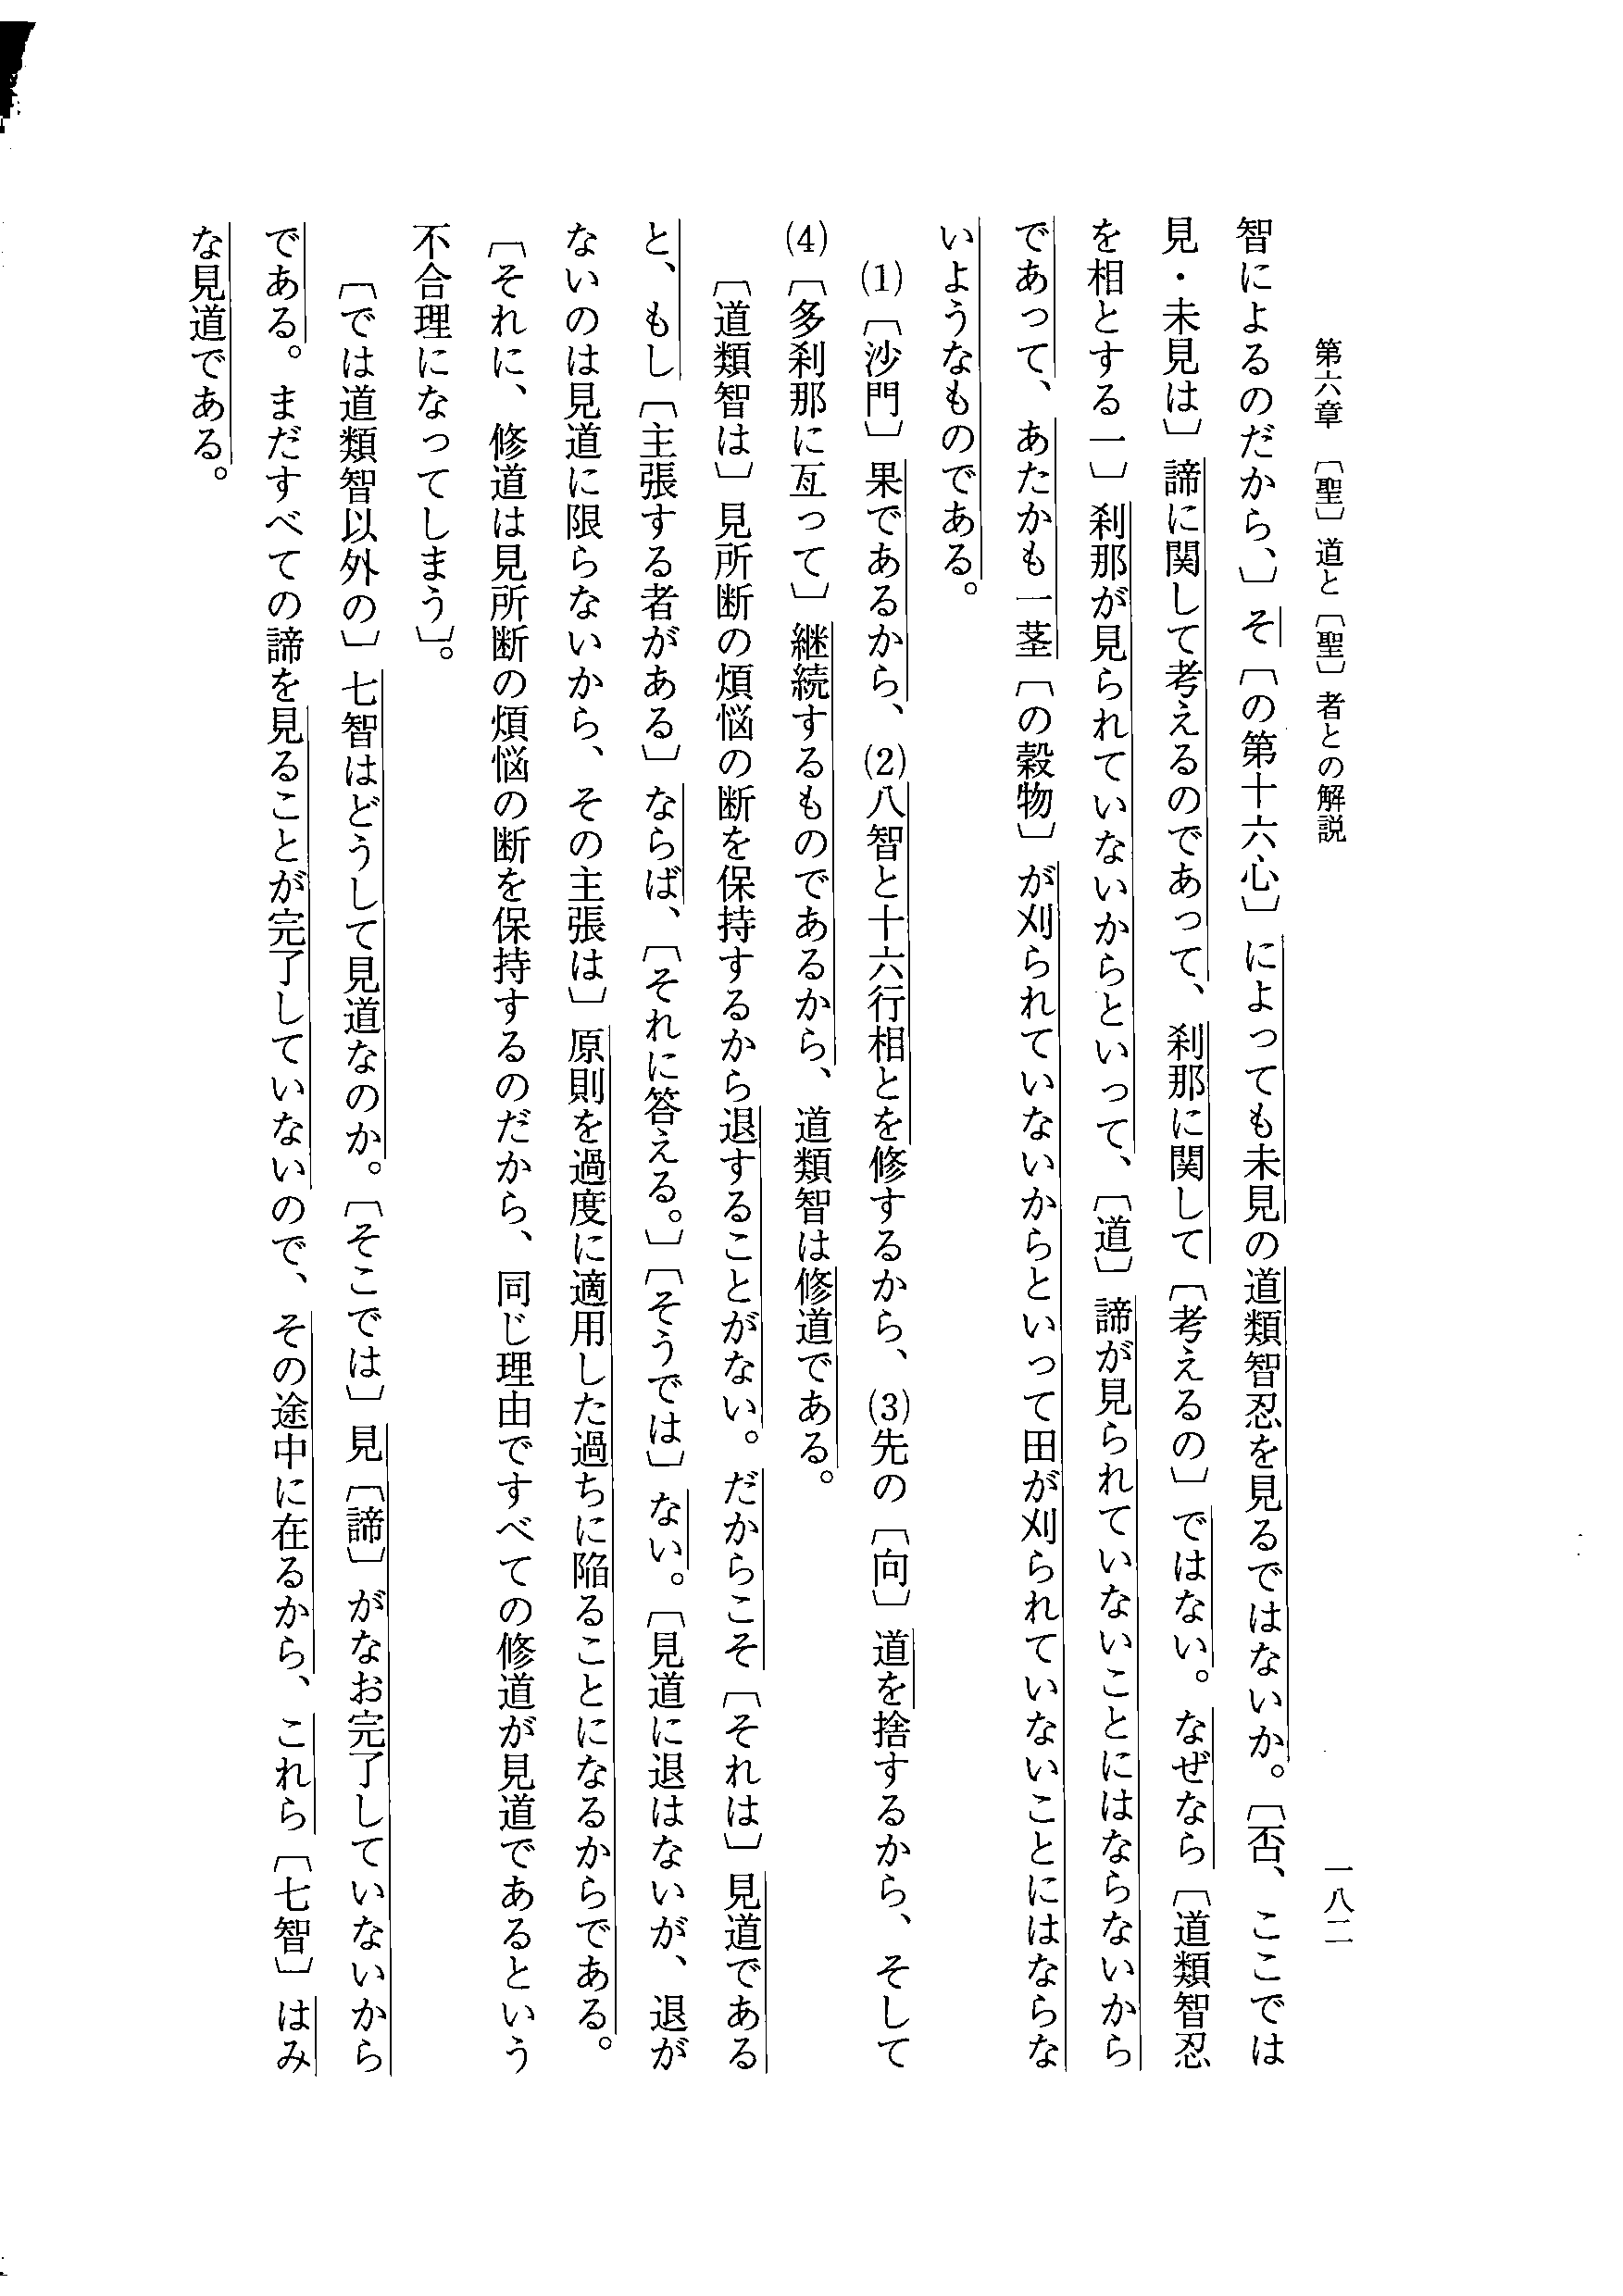 第六章 〔聖〕道と〔聖〕者との解説
一八二
智によるのだから、〕そ〔の第十六心〕によっても未見の道類智忍を見るではないか。〔否、ここでは
見・未見は〕諦に関して考えるのであって、刹那に関して〔考えるの〕ではない。なぜなら〔道類智忍
を相とする一〕刹那が見られていないからといって、〔道〕諦が見られていないことにはならないから
であって、あたかも一茎〔の穀物〕が刈られていないからといって田が刈られていないことにはならな
いようなものである。
(1)〔沙門〕果であるから、(2)八智と十六行相とを修するから、(3)先の〔向〕道を捨するから、そして
(4)〔多刹那に亙って〕継続するものであるから、道類智は修道である。
〔道類智は〕見所断の煩悩の断を保持するから退することがない。だからこそ〔それは〕見道である
と、もし〔主張する者がある〕ならば、〔それに答える。〕〔そうでは〕ない。〔見道に退はないが、退が
ないのは見道に限らないから、その主張は〕原則を過度に適用した過ちに陥ることになるからである。
〔それに、修道は見所断の煩悩の断を保持するのだから、同じ理由ですべての修道が見道であるという
不合理になってしまう〕。
〔では道類智以外の〕七智はどうして見道なのか。〔そこでは〕見〔諦〕がなお完了していないから
である。まだすべての諦を見ることが完了していないので、その途中に在るから、これら〔七智〕はみ
な見道である。